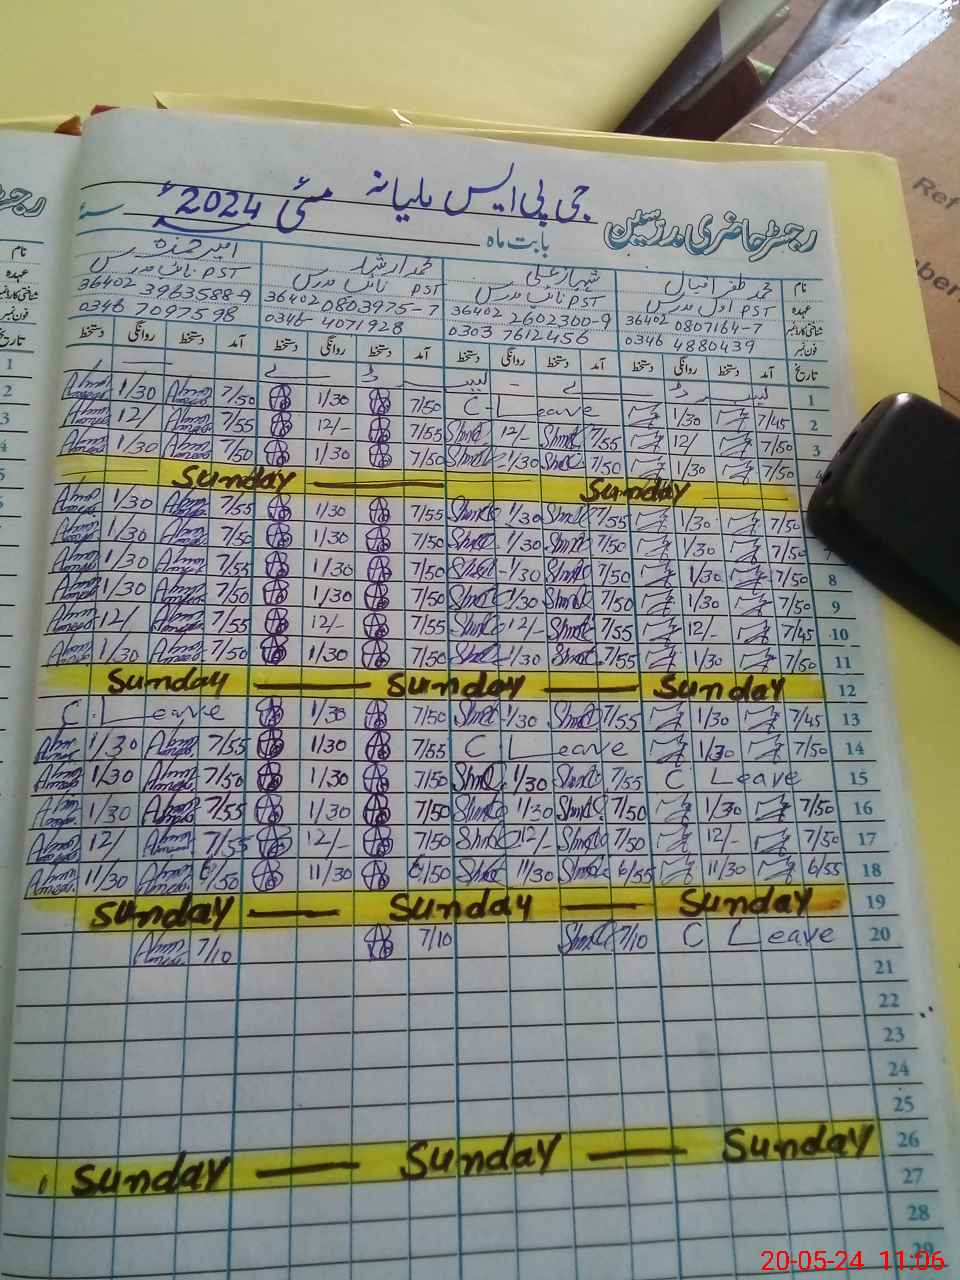 جی پی ایس بلیانہ مئی 2024ء
رجسٹر حاضری مدرسین بابت ماہ سنۂ
نام محمد ظفر اقبال شہباز علی محمد ارشد امیر حمزہ
عہدہ PST اول مدرس PST نائب مدرس PST نائب مدرس PST نائب مدرس
36402 0807164-7 36402 2602300-9 36402 0803975-7 36402 3963588-9
فون نمبر 0346 4880439 0303 7612456 0346-4071928 0346 7097598
تاریخ آمد دستخط روانگی دستخط آمد دستخط روانگی دستخط آمد دستخط روانگی دستخط آمد دستخط روانگی دستخط
1
1/30 7/50 1/30 7/50 C-Leave 1/30 7/45 2
12/ 7/55 12/- 7/55 12/- 7/55 12/ 7/50 3
1/30 7/50 1/30 7/50 1/30 7/50 1/30 7/50 4
Sunday Sunday
1/30 7/55 1/30 7/55 1/30 7/55 1/30 7/50
1/30 7/50 1/30 7/50 1/30 7/50 1/30 7/50
1/30 7/55 1/30 7/50 1/30 7/50 1/30 7/50 8
1/30 7/50 1/30 7/50 1/30 7/50 1/30 7/50 9
12/ 7/55 12/- 7/55 12/- 7/55 12/- 7/45 10
1/30 7/50 1/30 7/50 1/30 7/55 1/30 7/50 11
Sunday Sunday Sunday 12
C.Leave 1/30 7/50 1/30 7/55 1/30 7/45 13
1/30 7/55 1/30 7/55 C Leave 1/30 7/50 14
1/30 7/50 1/30 7/50 1/30 7/55 C Leave 15
1/30 7/50 1/30 7/50 1/30 7/50 1/30 7/50 16
12/ 7/55 12/- 7/50 12/- 7/50 12/- 7/50 17
11/30 6/50 11/30 6/50 11/30 6/55 11/30 6/55 18
Sunday Sunday Sunday 19
7/10 7/10 7/10 C Leave 20
21
22
23
24
25
26
Sunday Sunday Sunday
27
28
29
Ref
20-05-24 11:06